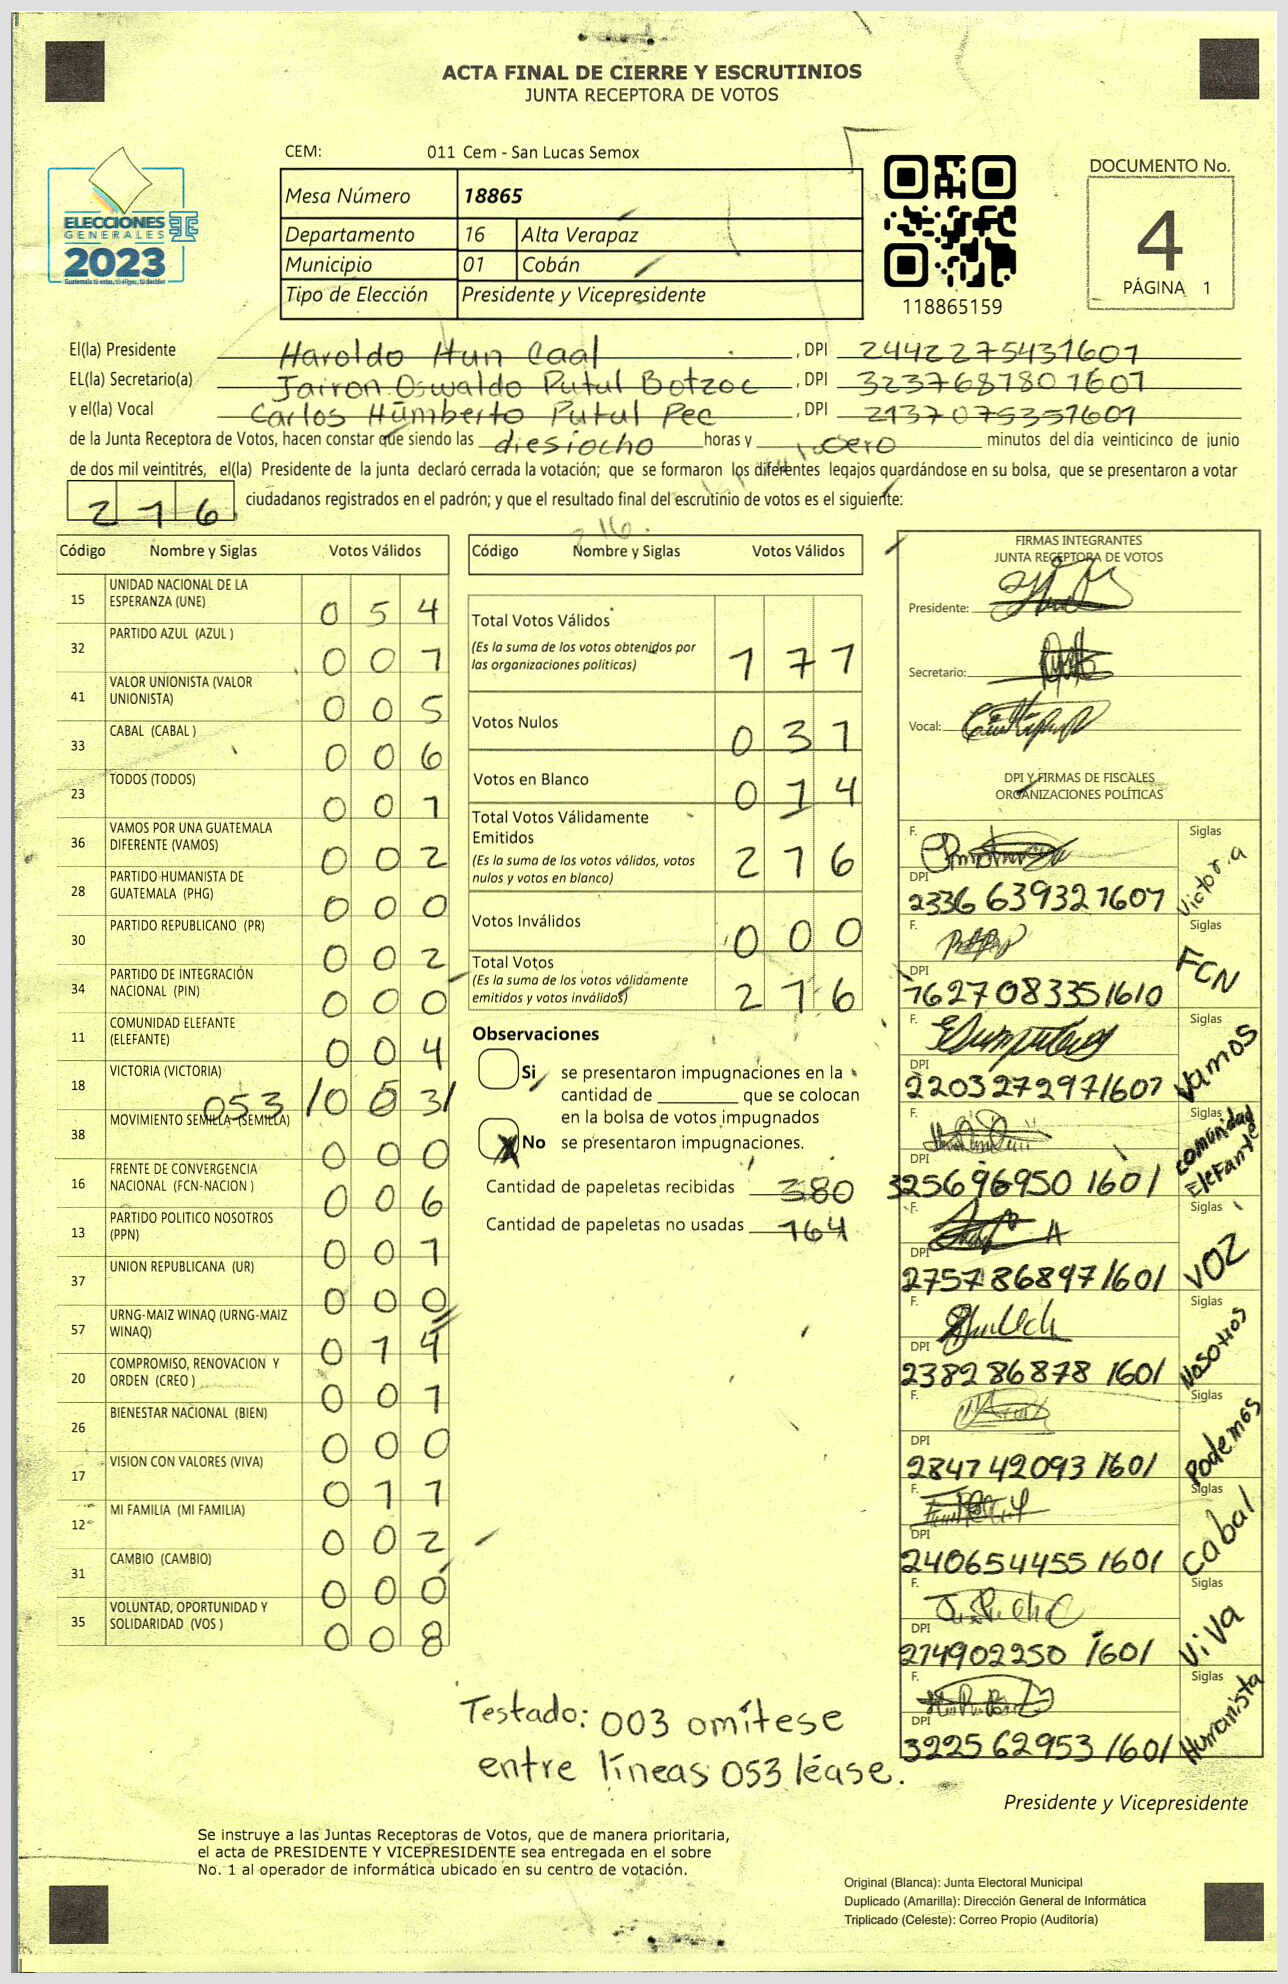 ACTA FINAL DE CIERRE Y ESCRUTINIOS
JUNTA RECEPTORA DE VOTOS
CEM: 011 Cem - San Lucas Semox
Mesa Número 18865
Departamento 16 Alta Verapaz
Municipio 01 Cobán
Tipo de Elección Presidente y Vicepresidente
ELECCIONES
GENERALES
2023
118865159
DOCUMENTO No.
4
PÁGINA 1
El(la) Presidente Haroldo Hun Caal, DPI 2442275431601
EL(la) Secretario(a) Jairon Oswaldo Putul Botzoc, DPI 3237681801601
y el(la) Vocal Carlos Humberto Putul Pec, DPI 2137075351601
de la Junta Receptora de Votos, hacen constar que siendo las diesiocho horas y cero minutos del día veinticinco de junio
de dos mil veintitrés, el(la) Presidente de la junta declaró cerrada la votación; que se formaron los diferentes legajos guardándose en su bolsa, que se presentaron a votar
216 ciudadanos registrados en el padrón; y que el resultado final del escrutinio de votos es el siguiente:
Código Nombre y Siglas Votos Válidos
15 UNIDAD NACIONAL DE LA ESPERANZA (UNE) 054
32 PARTIDO AZUL (AZUL ) 001
41 VALOR UNIONISTA (VALOR UNIONISTA) 005
33 CABAL (CABAL ) 006
23 TODOS (TODOS) 001
36 VAMOS POR UNA GUATEMALA DIFERENTE (VAMOS) 002
28 PARTIDO HUMANISTA DE GUATEMALA (PHG) 000
30 PARTIDO REPUBLICANO (PR) 002
34 PARTIDO DE INTEGRACIÓN NACIONAL (PIN) 000
11 COMUNIDAD ELEFANTE (ELEFANTE) 004
18 VICTORIA (VICTORIA) 053 /003/
38 MOVIMIENTO SEMILLA (SEMILLA) 000
16 FRENTE DE CONVERGENCIA NACIONAL (FCN-NACION ) 006
13 PARTIDO POLITICO NOSOTROS (PPN) 001
37 UNION REPUBLICANA (UR) 000
57 URNG-MAIZ WINAQ (URNG-MAIZ WINAQ) 014
20 COMPROMISO, RENOVACION Y ORDEN (CREO ) 001
26 BIENESTAR NACIONAL (BIEN) 000
17 VISION CON VALORES (VIVA) 011
12 MI FAMILIA (MI FAMILIA) 002
31 CAMBIO (CAMBIO) 000
35 VOLUNTAD, OPORTUNIDAD Y SOLIDARIDAD (VOS ) 008
216.
Código Nombre y Siglas Votos Válidos
Total Votos Válidos
(Es la suma de los votos obtenidos por
las organizaciones políticas) 171
Votos Nulos 031
Votos en Blanco 014
Total Votos Válidamente
Emitidos
(Es la suma de los votos válidos, votos
nulos y votos en blanco) 216
Votos Inválidos 000
Total Votos
(Es la suma de los votos válidamente
emitidos y votos inválidos) 216
Observaciones
Si se presentaron impugnaciones en la
cantidad de ________ que se colocan
en la bolsa de votos impugnados
X No se presentaron impugnaciones.
Cantidad de papeletas recibidas 380
Cantidad de papeletas no usadas 164
FIRMAS INTEGRANTES
JUNTA RECEPTORA DE VOTOS
Presidente:
Secretario:
Vocal:
DPI Y FIRMAS DE FISCALES
ORGANIZACIONES POLÍTICAS
F. Siglas Victoria
DPI 2336639321607
F. Siglas FCN
DPI 1627083351610
F. Siglas Vamos
DPI 2203272971607
F. Siglas comunidad Elefante
DPI 3256969501601
F. Siglas VOZ
DPI 2757868971601
F. Siglas Nosotros
DPI 2382868781601
F. Siglas Podemos
DPI 2847420931601
F. Siglas Cabal
DPI 2406544551601
F. Siglas ViVa
DPI 2749022501601
F. Siglas Humanista
DPI 3225629531601
Testado: 003 omítese
entre líneas 053 léase.
Presidente y Vicepresidente
Se instruye a las Juntas Receptoras de Votos, que de manera prioritaria,
el acta de PRESIDENTE Y VICEPRESIDENTE sea entregada en el sobre
No. 1 al operador de informática ubicado en su centro de votación.
Original (Blanca): Junta Electoral Municipal
Duplicado (Amarilla): Dirección General de Informática
Triplicado (Celeste): Correo Propio (Auditoría)